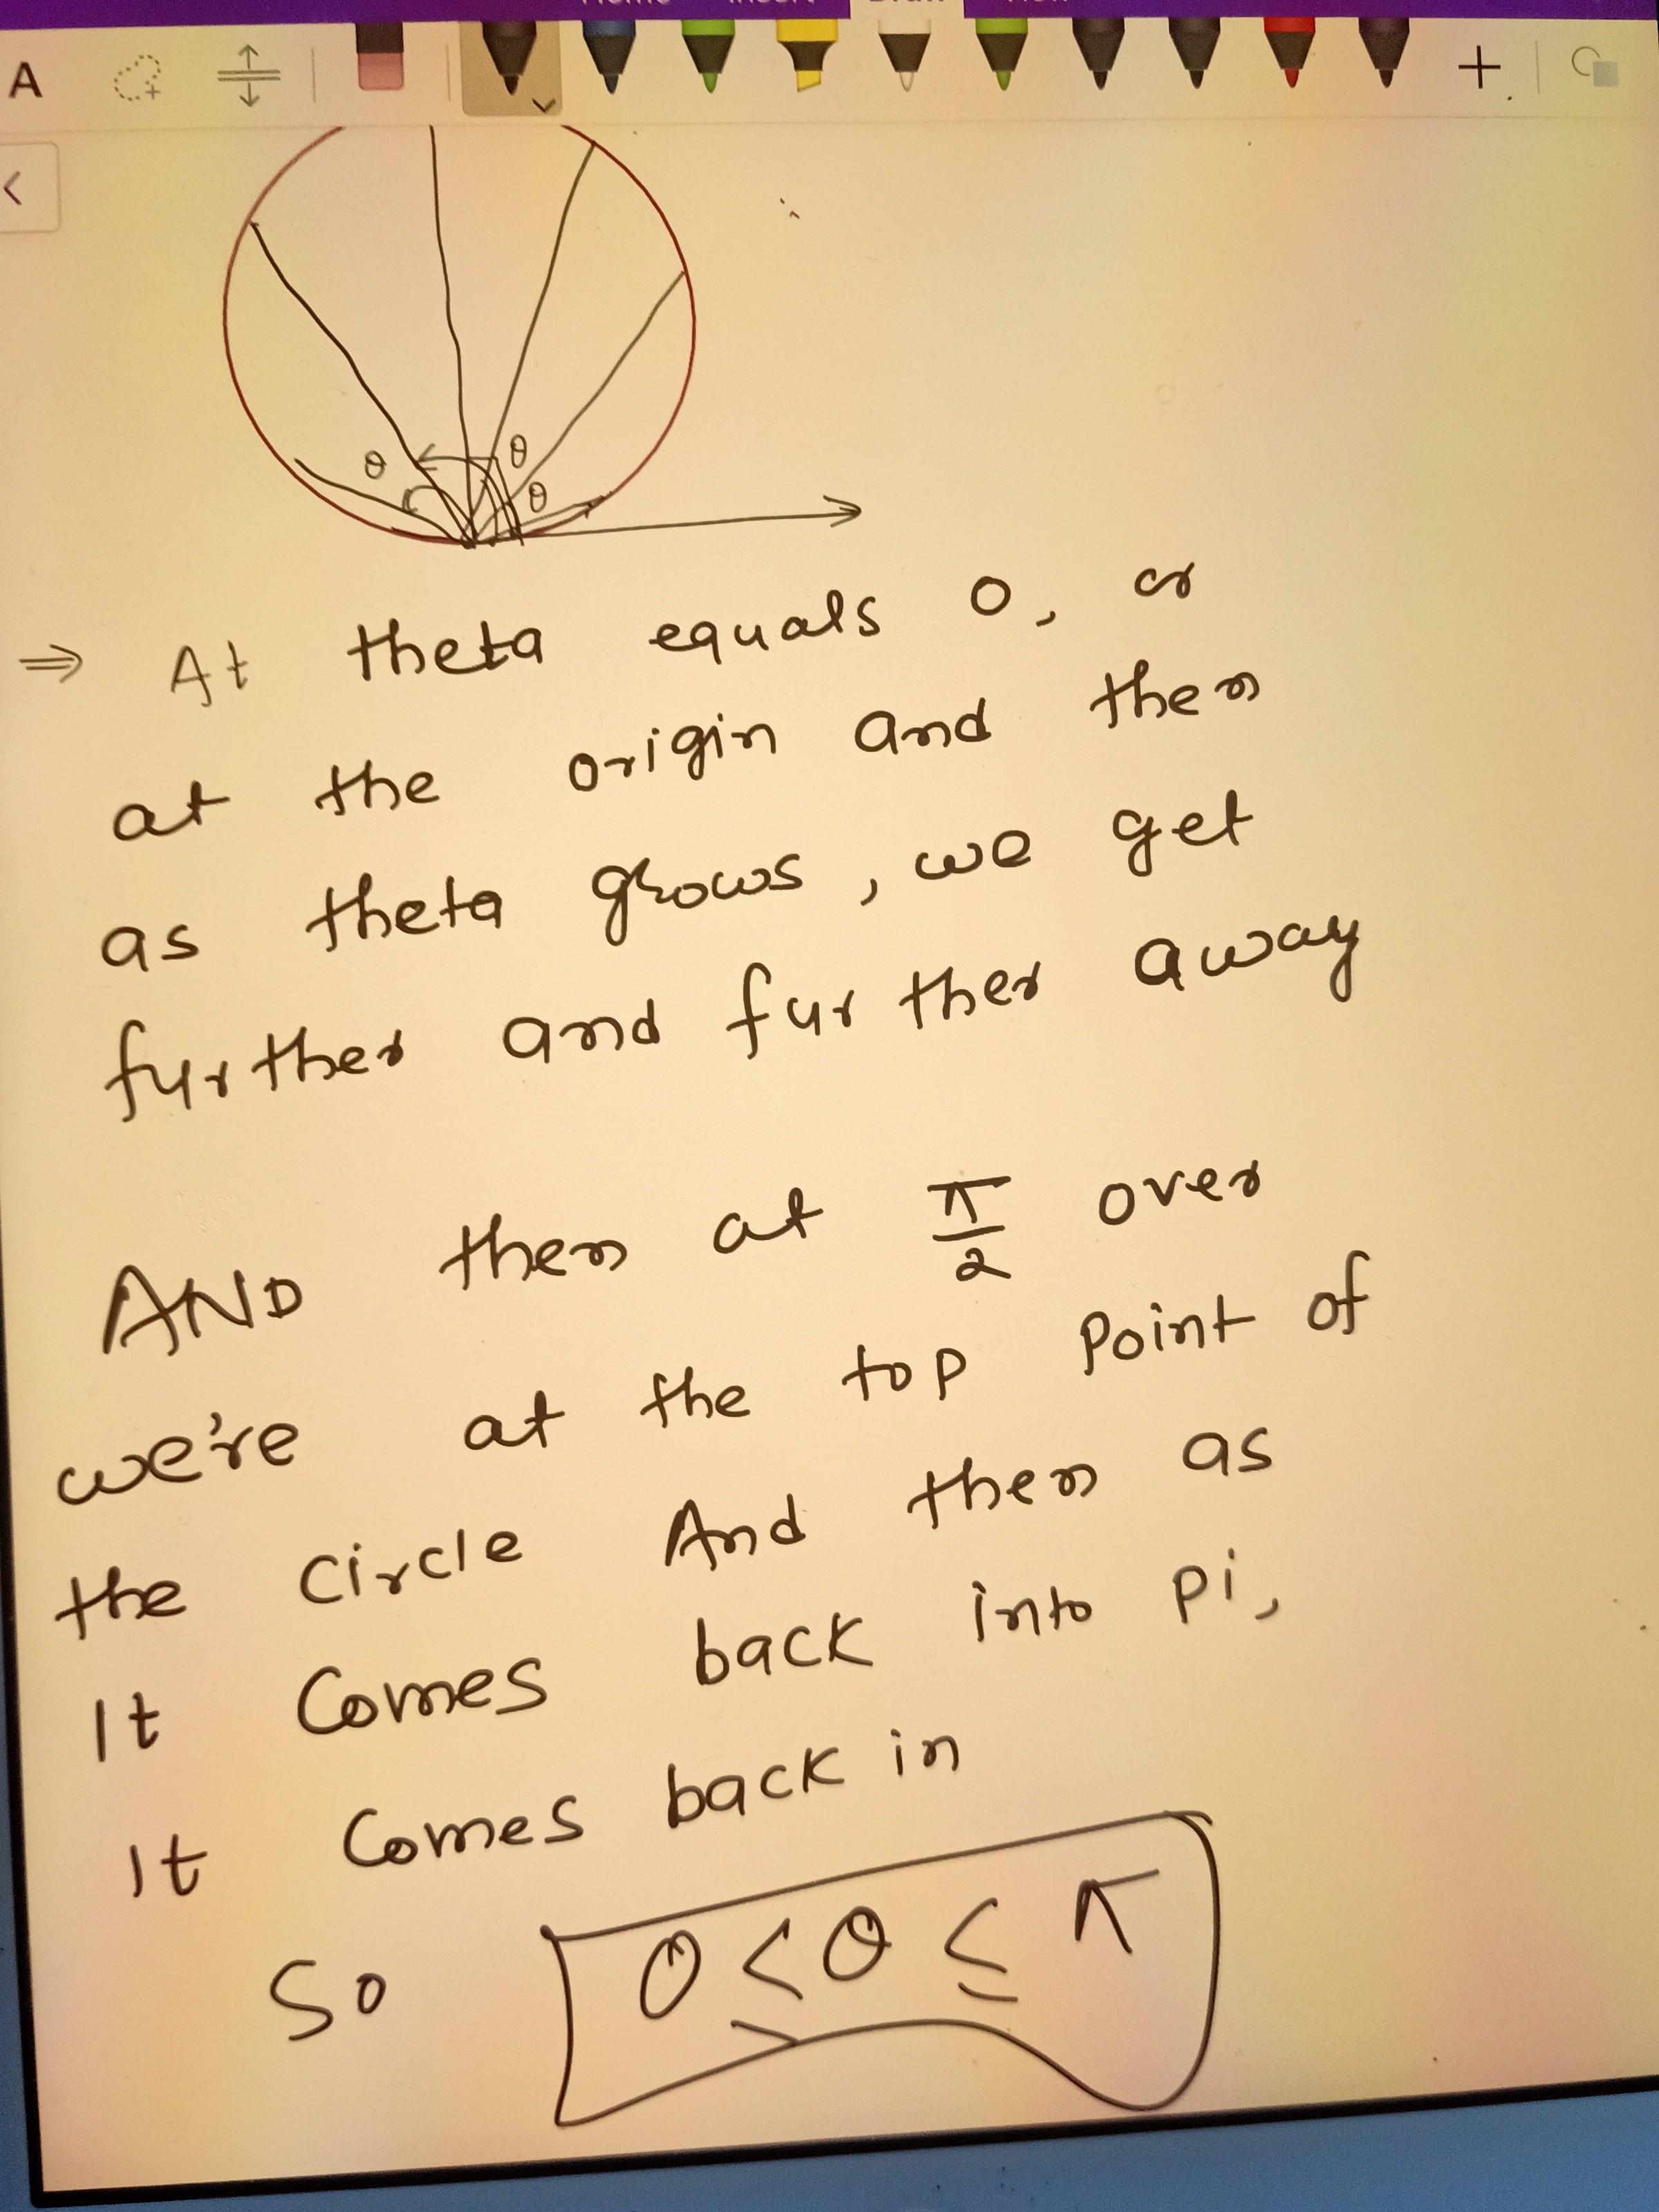 A
θ θ
θ
⇒ At theta equals 0, or
at the origin and then
as theta grows, we get
further and further away
AND then at π/2 over
we're at the top point of
the circle And then as
It comes back into pi,
It comes back in
So 0 ≤ θ ≤ π